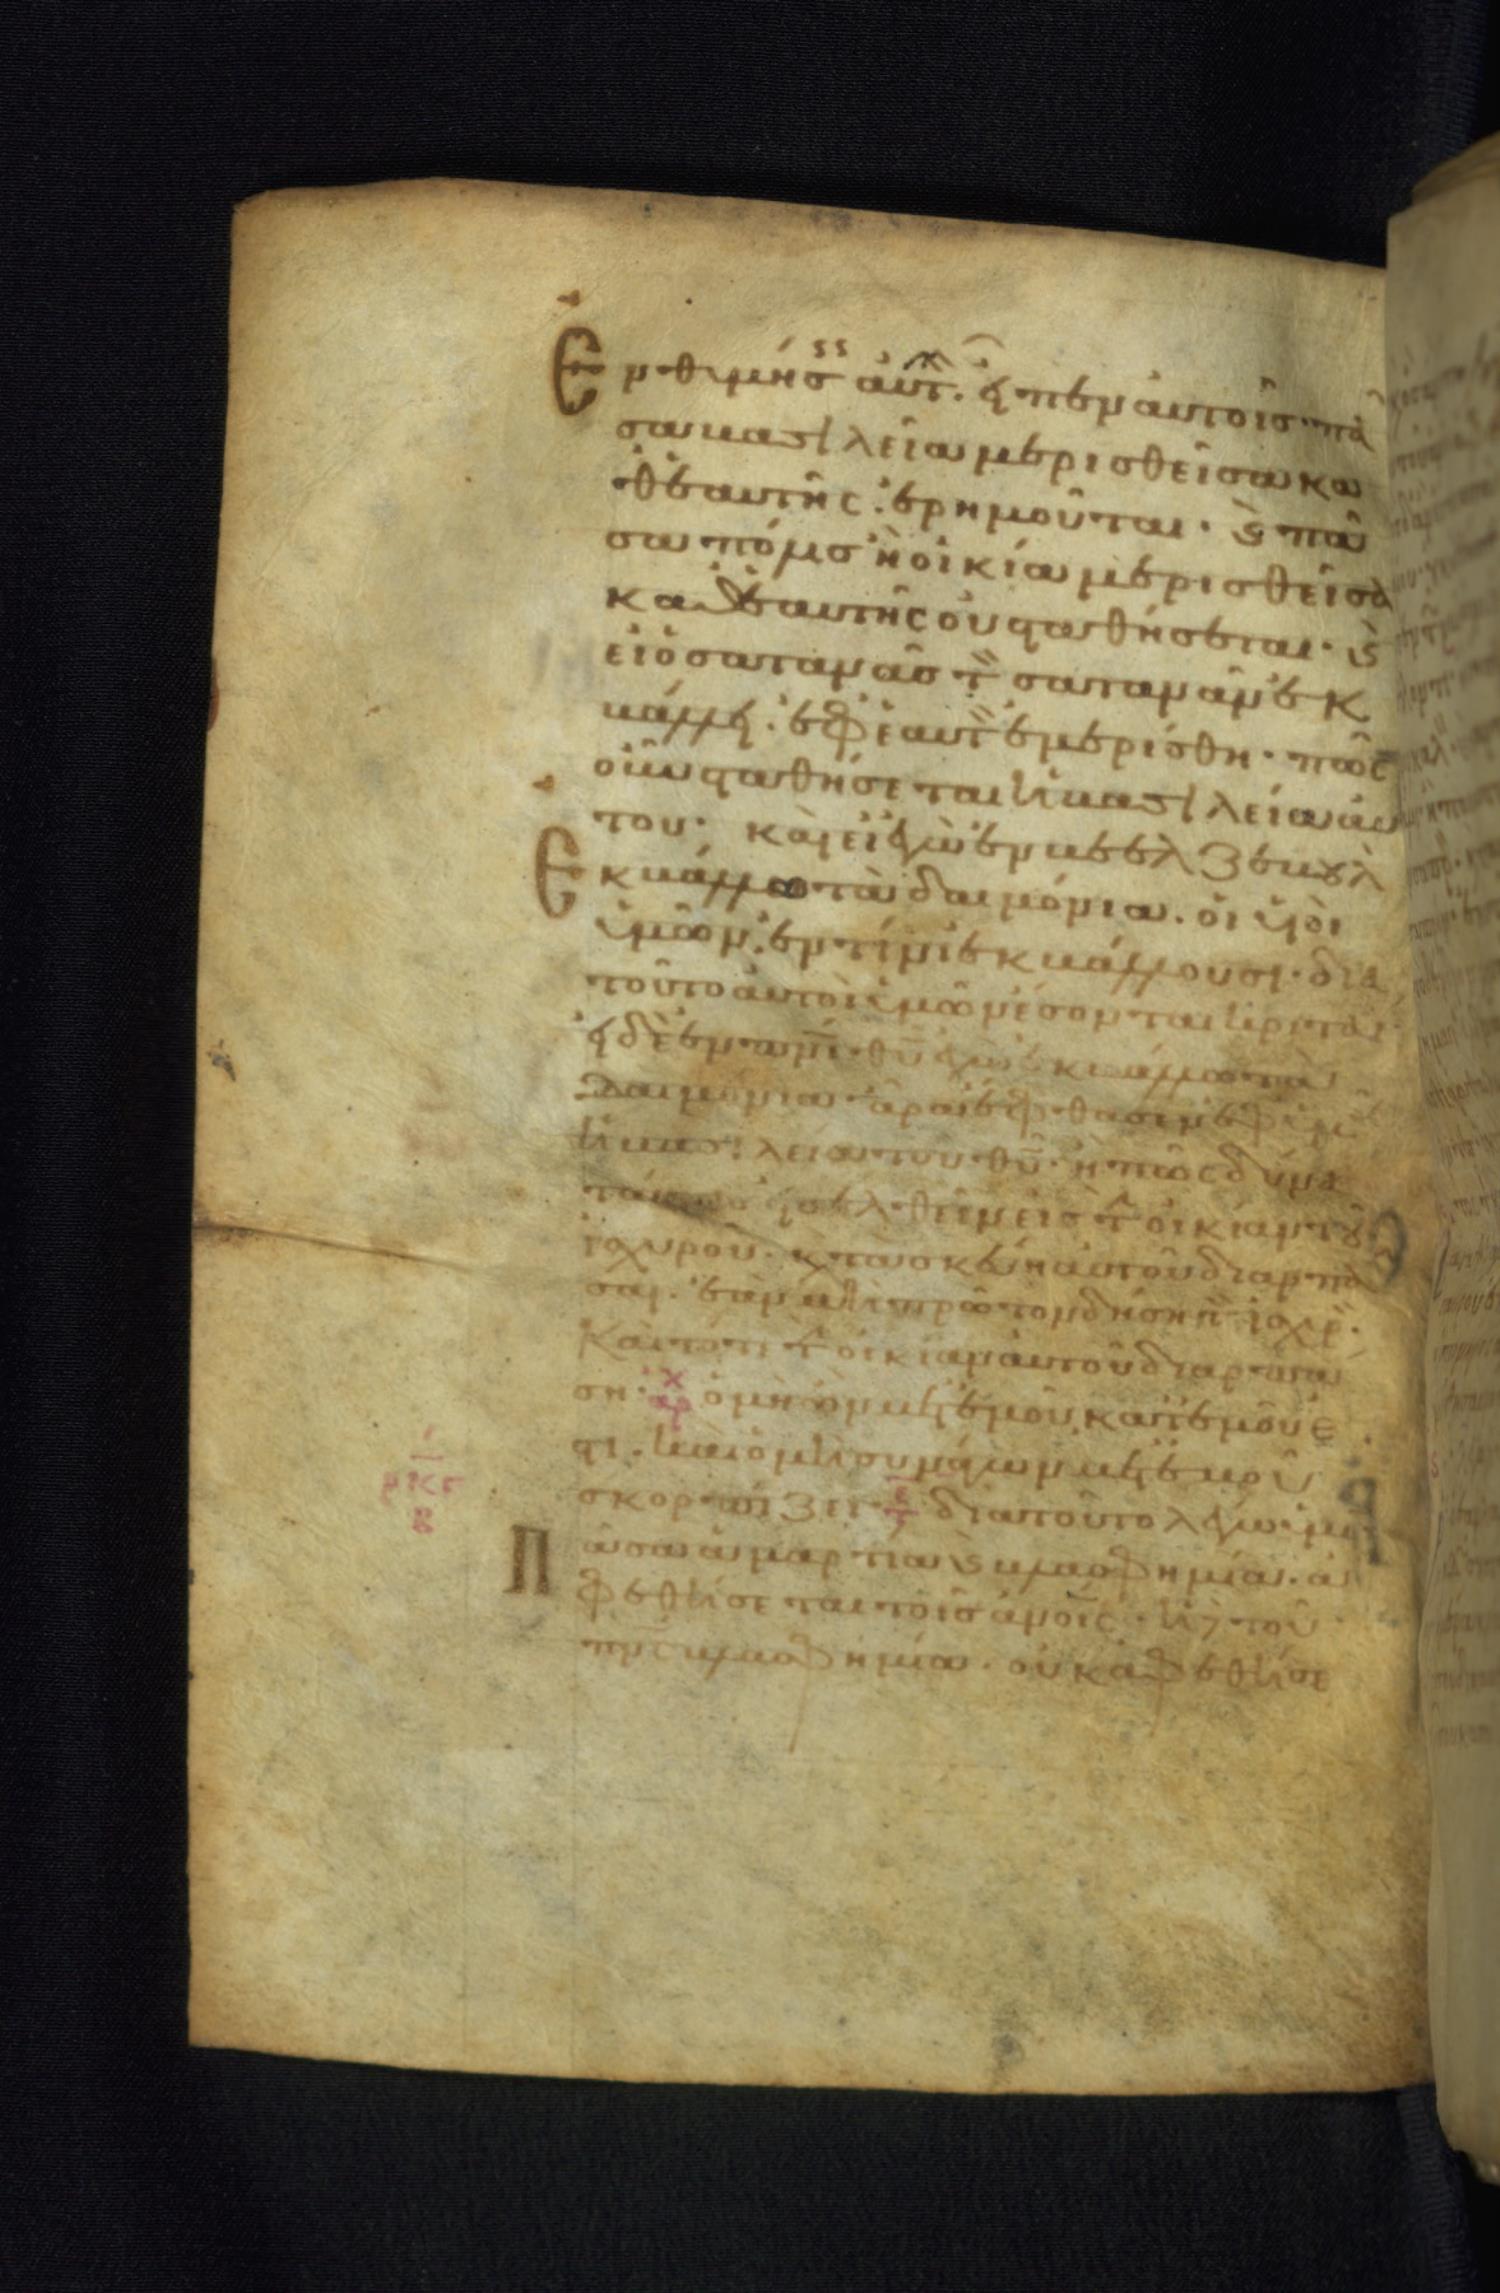 Ενθυμήσ αὐτ. εἶπεν αὐτοῖς· πᾶ
σα βασιλεία μερισθεῖσα κα
θ ἑαυτῆς ἐρημοῦται· ϗ πᾶ
σα πόλισ ἢ οἰκία μερισθεῖσα
καθ ἑαυτῆς οὐ σταθήσεται· ϗ
εἰ ὁ σατανᾶσ τ̀ σατανᾶν ἐκ
βάλλει. ἐφ ἑαυτ̀ ἐμερίσθη· πῶς
οὖν σταθήσεται ἡ βασιλεία αὐ
του· καὶ εἰ ἐγὼ ἐν βεελζεβοὺλ
Εκβάλλω τὰ δαιμόνια. οἱ υἱοὶ
ὑμῶν ἐν τίνι ἐκβάλλουσι· δια
τοῦτο αὐτοὶ ὑμῶν ἔσονται κριταί·
εἰ δὲ ἐν πνι θυ ἐγὼ ἐκβάλλω τὰ
δαιμόνια· ἄρα ἔφθασεν ἐφ ὑμ
ἡ βασιλεία του θυ· ἢ πῶς δύνα
ταί τισ εἰσελθεῖν εἰσ τ̀ οἰκίαν τȣ
ἰσχυροῦ· ϗ τὰ σκεύη αὐτοῦ διαρπά
σαι. ἐὰν μὴ πρῶτον δήση τ̀ ἰσχυρ·
Καὶ τότε τ̀ οἰκίαν αὐτοῦ διαρπά
ση· αρχ ὁ μὴ ὢν μετ ἐμοῦ κατ ἐμοῦ ἐ
στι. καὶ ὁ μὴ συνάγων μετ ἐμοῦ
σκορπίζει· διὰ τοῦτο λέγω ὑμ
Πᾶσα ἁμαρτία ϗ βλασφημία. ἀ
φεθήσεται τοῖσ ἀνοις· ἡ δὲ τοῦ
πνς βλασφημία. οὐκ ἀφεθήσε